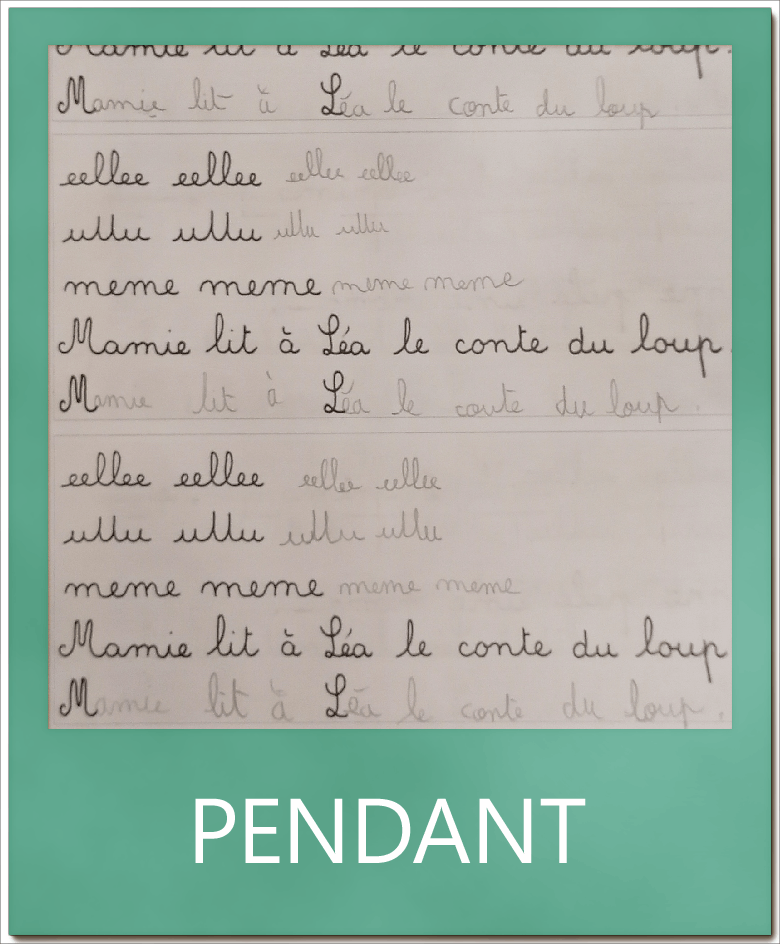 Mamie lit à Léa le conte du loup.
Mamie lit à Léa le conte du loup
eellee eellee eellee eellee
ullu ullu ullu ullu
meme meme meme meme
Mamie lit à Léa le conte du loup.
Mamie lit à Léa le conte du loup.
eellee eellee eellee eellee
ullu ullu ullu ullu
meme meme meme meme
Mamie lit à Léa le conte du loup
Mamie lit à Léa le conte du loup.
PENDANT